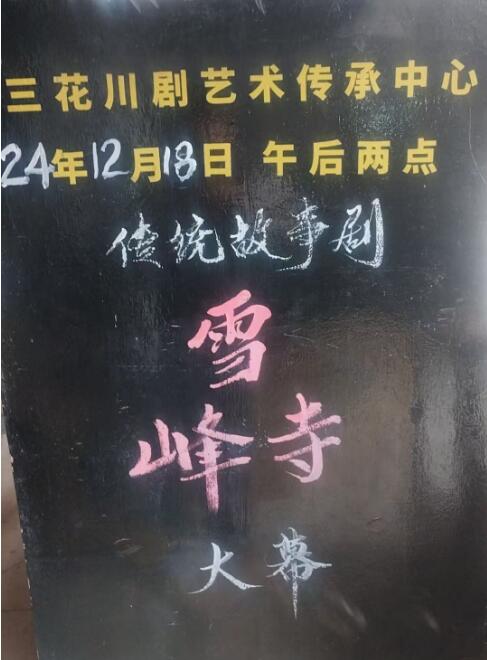 三花川剧艺术传承中心
24年12月18日 午后两点
传统故事剧
雪
峰寺
大幕